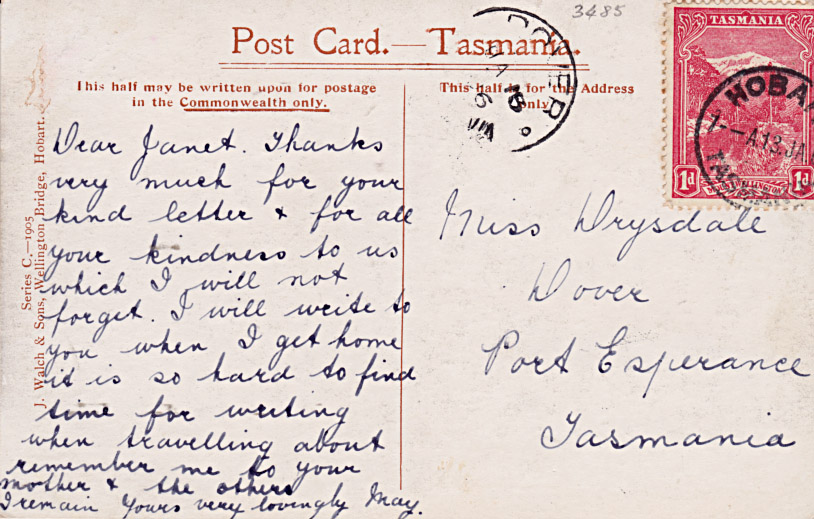 3485
Post Card.—Tasmania.
This half may be written upon for postage
in the Commonwealth only.
This half is for the Address
only.
Series C.—1905
J. Walch & Sons, Wellington Bridge, Hobart.
Dear Janet. Thanks
very much for your
kind letter & for all
your kindness to us
which I will not
forget. I will write to
you when I get home
it is so hard to find
time for writing
when travelling about
remember me to your
mother & the others
I remain Yours very lovingly May.
Miss Drysdale
Dover
Port Esperance
Tasmania
DOVER
TASMANIA
1d
1d
HOBA
13 JA